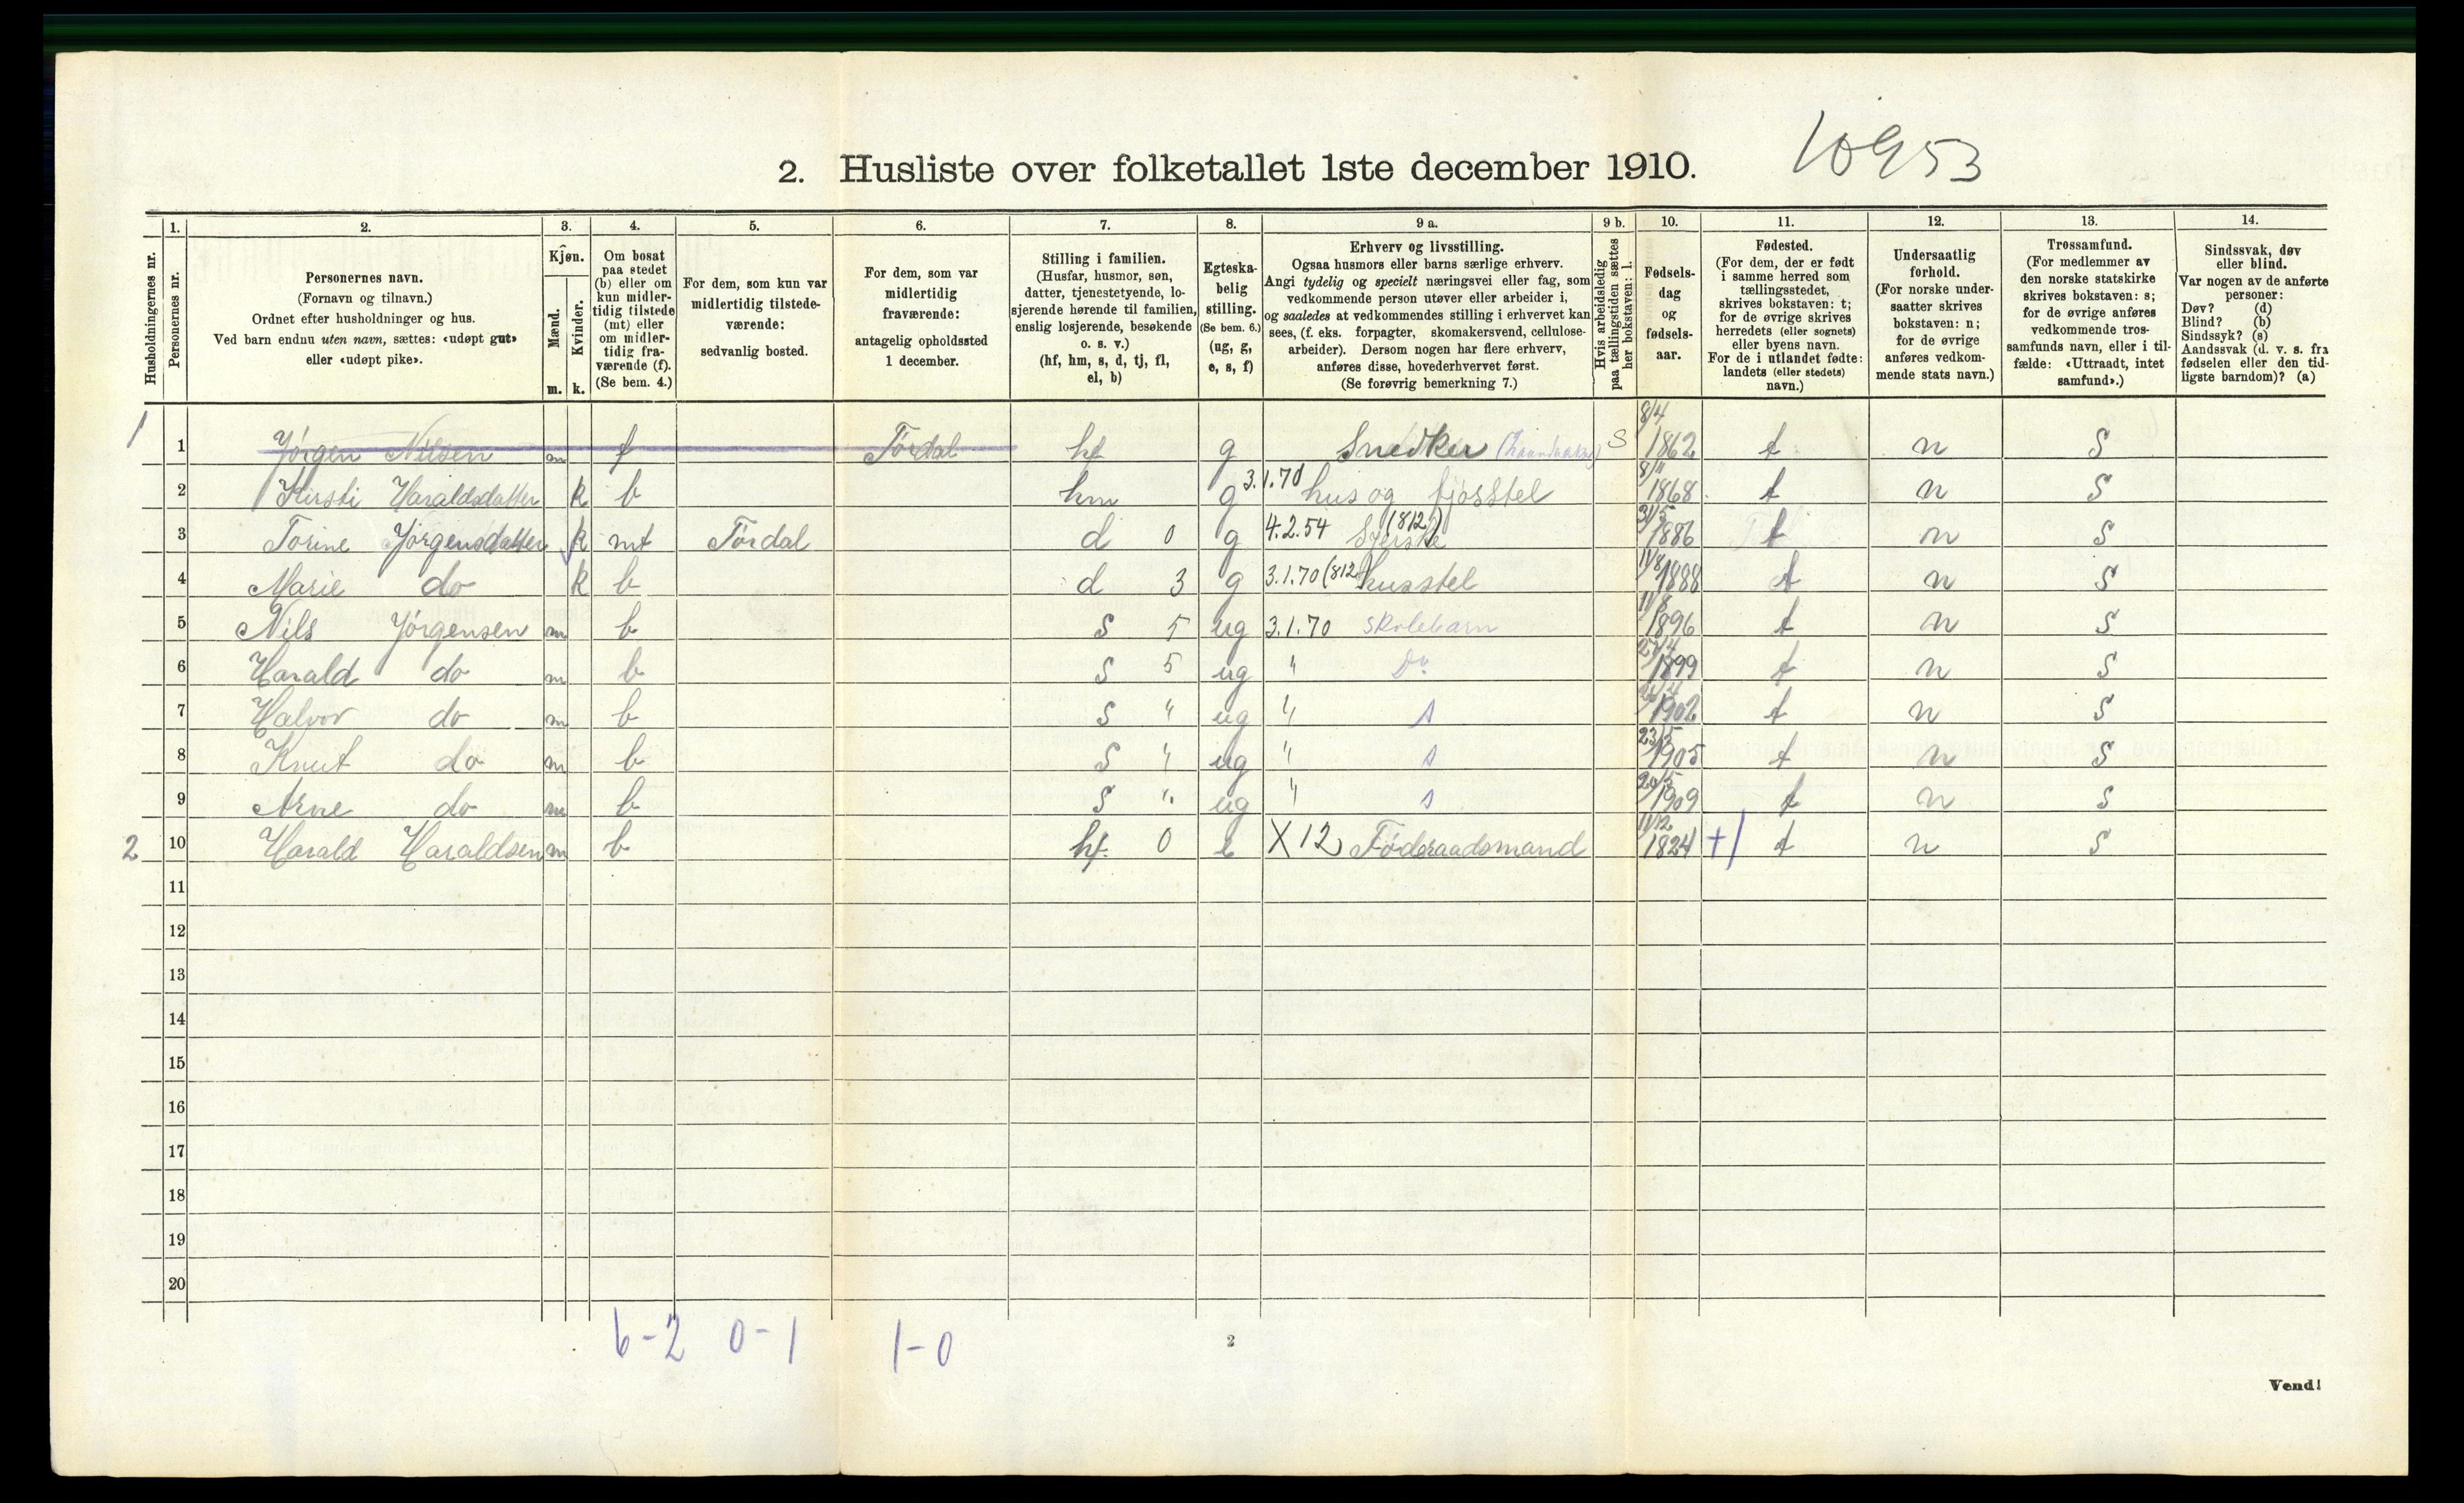 10953
2. Husliste over folketallet 1ste december 1910.
1. 2. 3. 4. 5. 6. 7. 8. 9 a. 9 b. 10. 11. 12. 13. 14.
Husholdningernes nr.
Personernes nr.
Personernes navn.
(Fornavn og tilnavn.)
Ordnet efter husholdninger og hus.
Ved barn endnu uten navn, sættes: «udøpt gut»
eller «udøpt pike».
Kjøn.
Mænd.
Kvinder.
m. k.
Om bosat
paa stedet
(b) eller om
kun midler-
tidig tilstede
(mt) eller
om midler-
tidig fra-
værende (f).
(Se bem. 4.)
For dem, som kun var
midlertidig tilstede-
værende:
sedvanlig bosted.
For dem, som var
midlertidig
fraværende:
antagelig opholdssted
1 december.
Stilling i familien.
(Husfar, husmor, søn,
datter, tjenestetyende, lo-
sjerende hørende til familien,
enslig losjerende, besøkende
o. s. v.)
(hf, hm, s, d, tj, fl,
el, b)
Egteska-
belig
stilling.
(Se bem. 6.)
(ug, g,
e, s, f)
Erhverv og livsstilling.
Ogsaa husmors eller barns særlige erhverv.
Angi tydelig og specielt næringsvei eller fag, som
vedkommende person utøver eller arbeider i,
og saaledes at vedkommendes stilling i erhvervet kan
sees, (f. eks. forpagter, skomakersvend, cellulose-
arbeider). Dersom nogen har flere erhverv,
anføres disse, hovederhvervet først.
(Se forøvrig bemerkning 7.)
Hvis arbeidsledig
paa tællingstiden sættes
her bokstaven: l.
Fødsels-
dag
og
fødsels-
aar.
Fødested.
(For dem, der er født
i samme herred som
tællingsstedet,
skrives bokstaven: t;
for de øvrige skrives
herredets (eller sognets)
eller byens navn.
For de i utlandet fødte:
landets (eller stedets)
navn.)
Undersaatlig
forhold.
(For norske under-
saatter skrives
bokstaven: n;
for de øvrige
anføres vedkom-
mende stats navn.)
Trossamfund.
(For medlemmer av
den norske statskirke
skrives bokstaven: s;
for de øvrige anføres
vedkommende tros-
samfunds navn, eller i til-
fælde: «Uttraadt, intet
samfund».)
Sindssvak, døv
eller blind.
Var nogen av de anførte
personer:
Døv? (d)
Blind? (b)
Sindssyk? (s)
Aandssvak (d. v. s. fra
fødselen eller den tid-
ligste barndom)? (a)
1 1 Jørgen Nilsen m f Tørdal hf g Snedker S 8/4 1862 t n S
2 Kirsti Haraldsdatter k b hm g 3.1.70 hus og fjøsstel 8/11 1868 t n S
3 Torine Jørgensdatter k mt Tørdal d 0 g 4.2.54 (812) Syerske 31/5 1886 t n S
4 Marie do k b d 3 g 3.1.70 (812) husstel 11/8 1888 t n S
5 Nils Jørgensen m b S 5 ug 3.1.70 skolebarn 11/8 1896 t n S
6 Harald do m b S 5 ug " Do 1899 t n S
7 Halvor do m b S " ug " s 1902 t n S
8 Knut do m b S " ug " s 1905 t n S
9 Arne do m b S " ug " s 20/5 1909 t n S
2 10 Harald Haraldsen m b hf 0 e X 12 Føderaadsmand 11/12 1824 +1 t n S
11
12
13
14
15
16
17
18
19
20
6-2 0-1 1-0
2
Vend!